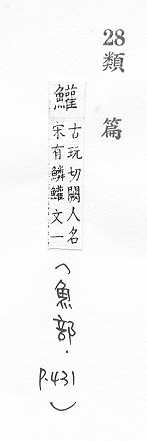 28 類篇
鱹
古玩切闕人名
宋有鱗鱹文一
(魚部. P.431)